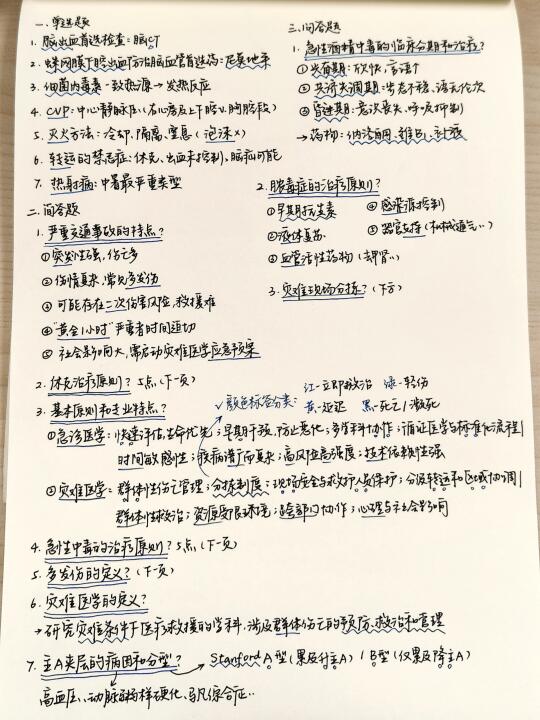 一、单选题
1. 脑出血首选检查：脑CT
2. 蛛网膜下腔出血防治脑血管首选药：尼莫地平
3. 细菌内毒素—致热源→发热反应
4. CVP：中心静脉压（右心房及上下腔V胸腔段）
5. 灭火方法：冷却、隔离、窒息（泡沫×）
6. 转运的禁忌症：休克、出血未控制、脑疝可能
7. 热射病：中暑最严重类型
二、问答题
1. 严重交通事故的特点？
①突发性强，伤亡多
②伤情复杂，常见多发伤
③可能存在二次伤害风险，救援难
④“黄金1小时”严重者时间迫切
⑤社会影响大，需启动灾难医学应急预案
2. 休克治疗原则？5点（下一页）
3. 基本原则和专业特点？
①急诊医学：快速评估，生命优先；早期干预，防止恶化；多学科协作；循证医学与标准化流程|
时间敏感性；疾病谱广而复杂；高风险高强度；技术依赖性强
②灾难医学：群体性伤亡管理；分拣制度；现场安全与救护人员保护；分级转运和区域协调|
群体性救治；资源受限环境；跨部门协作；心理与社会影响
4. 急性中毒的治疗原则？5点（下一页）
5. 多发伤的定义？（下一页）
6. 灾难医学的定义？
→研究灾难条件下医疗救援的学科，涉及群体伤亡的预防、救治和管理
7. 主A夹层的病因和分型？→Stanford A型（累及升主A） / B型（仅累及降主A）
高血压、动脉粥样硬化、马凡综合症..
三、问答题
1. 急性酒精中毒的临床分期和治疗？
①兴奋期：欣快，言语个
②共济失调期：步态不稳，语无伦次
③昏迷期：意识丧失，呼吸抑制
→药物：纳洛酮、维B1、补液
2. 脓毒症的治疗原则？
①早期抗生素 ④感染源控制
②液体复苏 ⑤器官支持（机械通气..）
③血管活性药物（去甲肾..）
3. 灾难现场分拣？（下方）
✓颜色标签分类：红-立即救治 绿-轻伤
黄-延迟 黑-死亡/濒死